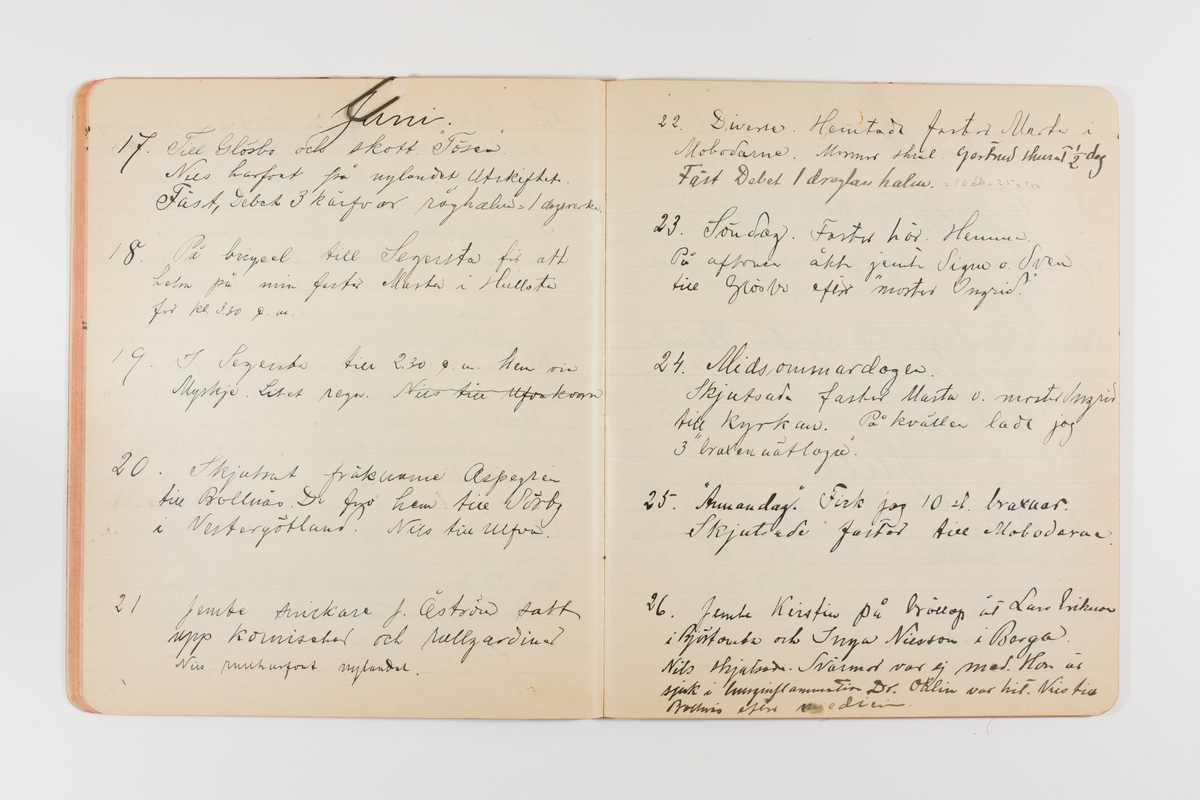 Juni.
17. Till Glösbo och skott "Tösen"
Nils harfvat på nylandet Utskiftet.
Fäst, Debet 3 kärfvar råghalm = 1 dagsverke.
18. På bicycel till Segersta för att
helsa på min faster Marta i Hällsta
för kl. 3.30 e.m.
19. I Segersta till 2.30 e.m. hem via
Myskje. Litet regn. Nils till Ulfva kvarn
20. Skjutsat fröknarne Aspegren
till Bollnäs. De foro hem till Dörby
i Vestergötland. Nils till Ulfva.
21 Jemte snickare J. Åström satt
upp kornischer och rullgardiner
Nils rullharfvat nylandet.
22. Diverse. Hemtade faster Marta i
Mobodarne. Mormor skral. Gertrud skurat ½ dag
Fäst Debet 1 draglass halm.
23. Söndag. Faster här. Hemma.
På aftonen åkte jemte Signe o. Sven
till Glösbo efter "moster Ingrid".
24. Midsommardagen.
Skjutsade faster Marta o. moster Ingrid
till kyrkan. På kvällen lade jag
3 "braxennätlagu".
25. "Annandag". Fick jag 10 st. braxnar.
Skjutsade faster till Mobodarne.
26. Jemte Kirstin på bröllop åt Lars Erikson
i och Inga Nilsson i Berga.
Nils skjutsade. Svärmor var ej med. Hon är
sjuk i lunginflammation Dr. Ohlin var hit. Nils till
Bollnäs efter medicin.